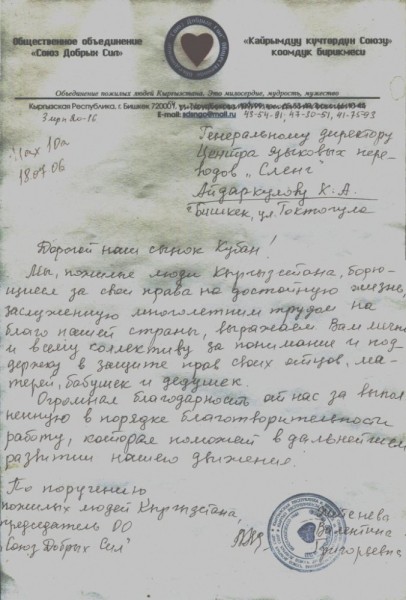 Общественное объединение
«Союз Добрых Сил»
«Кайрымдуу күчтөрдүн Союзу»
коомдук бирикмеси
Объединение пожилых людей Кыргызстана. Это милосердие, мудрость, мужество
Кыргызская Республика, г. Бишкек 720001,
E-mail: sdsngo@mail.ru 43-54-81, 47-30-51, 41-75-93
18.09.06
Генеральному директору
Центра языковых пере-
водов „Сленг"
Айдаркулову К. А.
г. Бишкек, ул. Токтогула
Дорогой наш сынок Кубан!
Мы, пожилые люди Кыргызстана, борю-
щиеся за свои права на достойную жизнь,
заслуженную многолетним трудом на
благо нашей страны, выражаем Вам лично
и всему коллективу за понимание и под-
держку в защите прав своих отцов, ма-
терей, бабушек и дедушек.
Огромная благодарность от нас за выпол-
ненную в порядке благотворительности
работу, которая поможет в дальнейшем
развитии нашего движения.
По поручению
пожилых людей Кыргызстана,
председатель ОО
"Союз Добрых Сил"
Валентина
Григорьевна